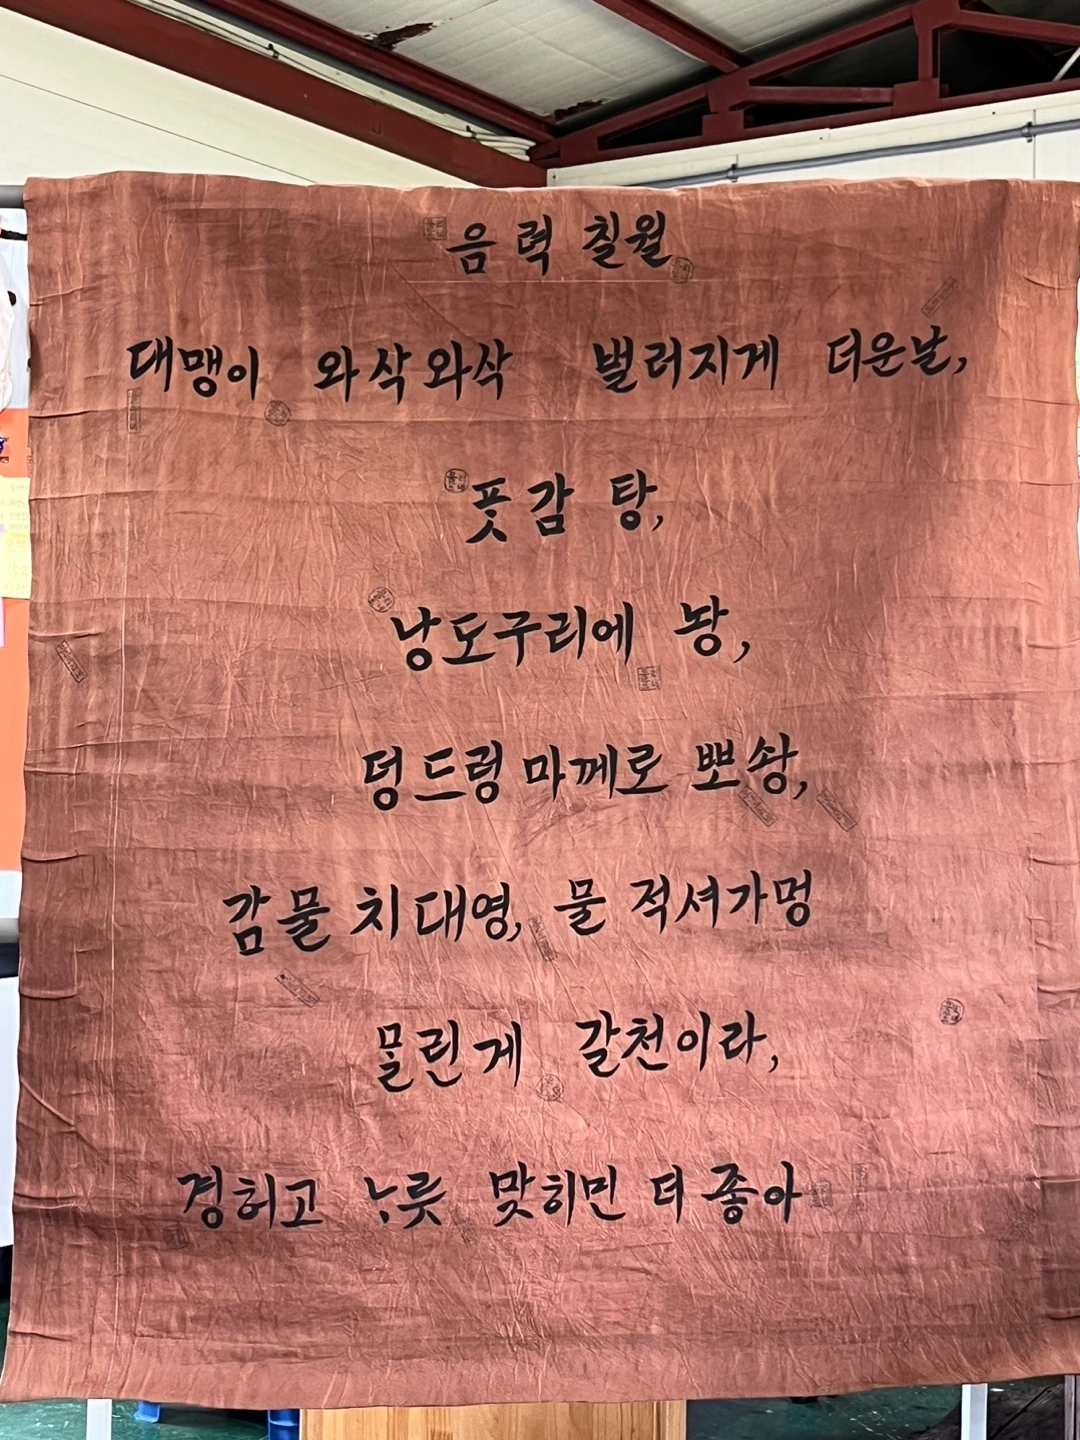 음력 칠월
대맹이 와삭와삭 벌러지게 더운날,
풋감 탕,
낭도구리에 놩,
덩드렁마께로 뽀솽,
감물 치대영, 물 적셔가멍
ᄆᆞᆯ린게 갈천이라,
경허고 ᄂᆞ릇 맞히민 더 좋아